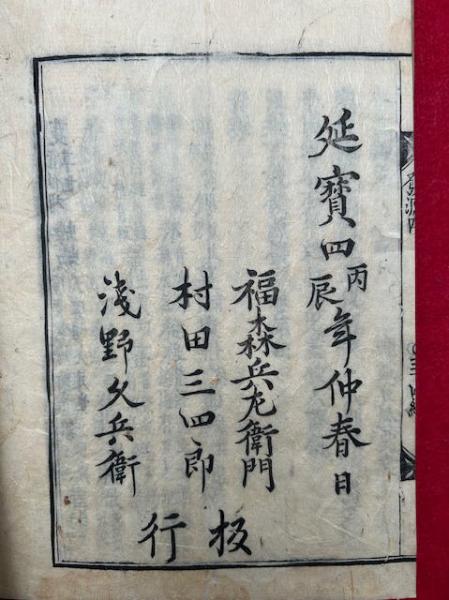 延寶四丙辰年仲春日
福森兵左衛門
村田三四郎
淺野久兵衛
板行